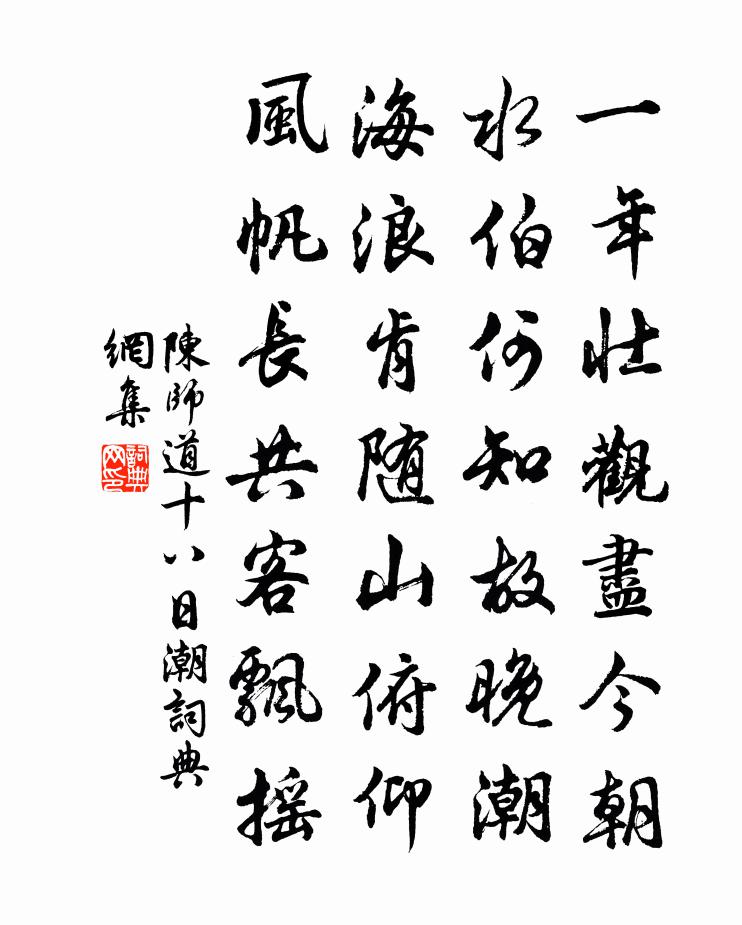 一年壯觀盡今朝
水伯何知故晚潮
海浪肯随山俯仰
風帆長共客飄摇
陳師道十八日潮詞典
網集
詞典網印